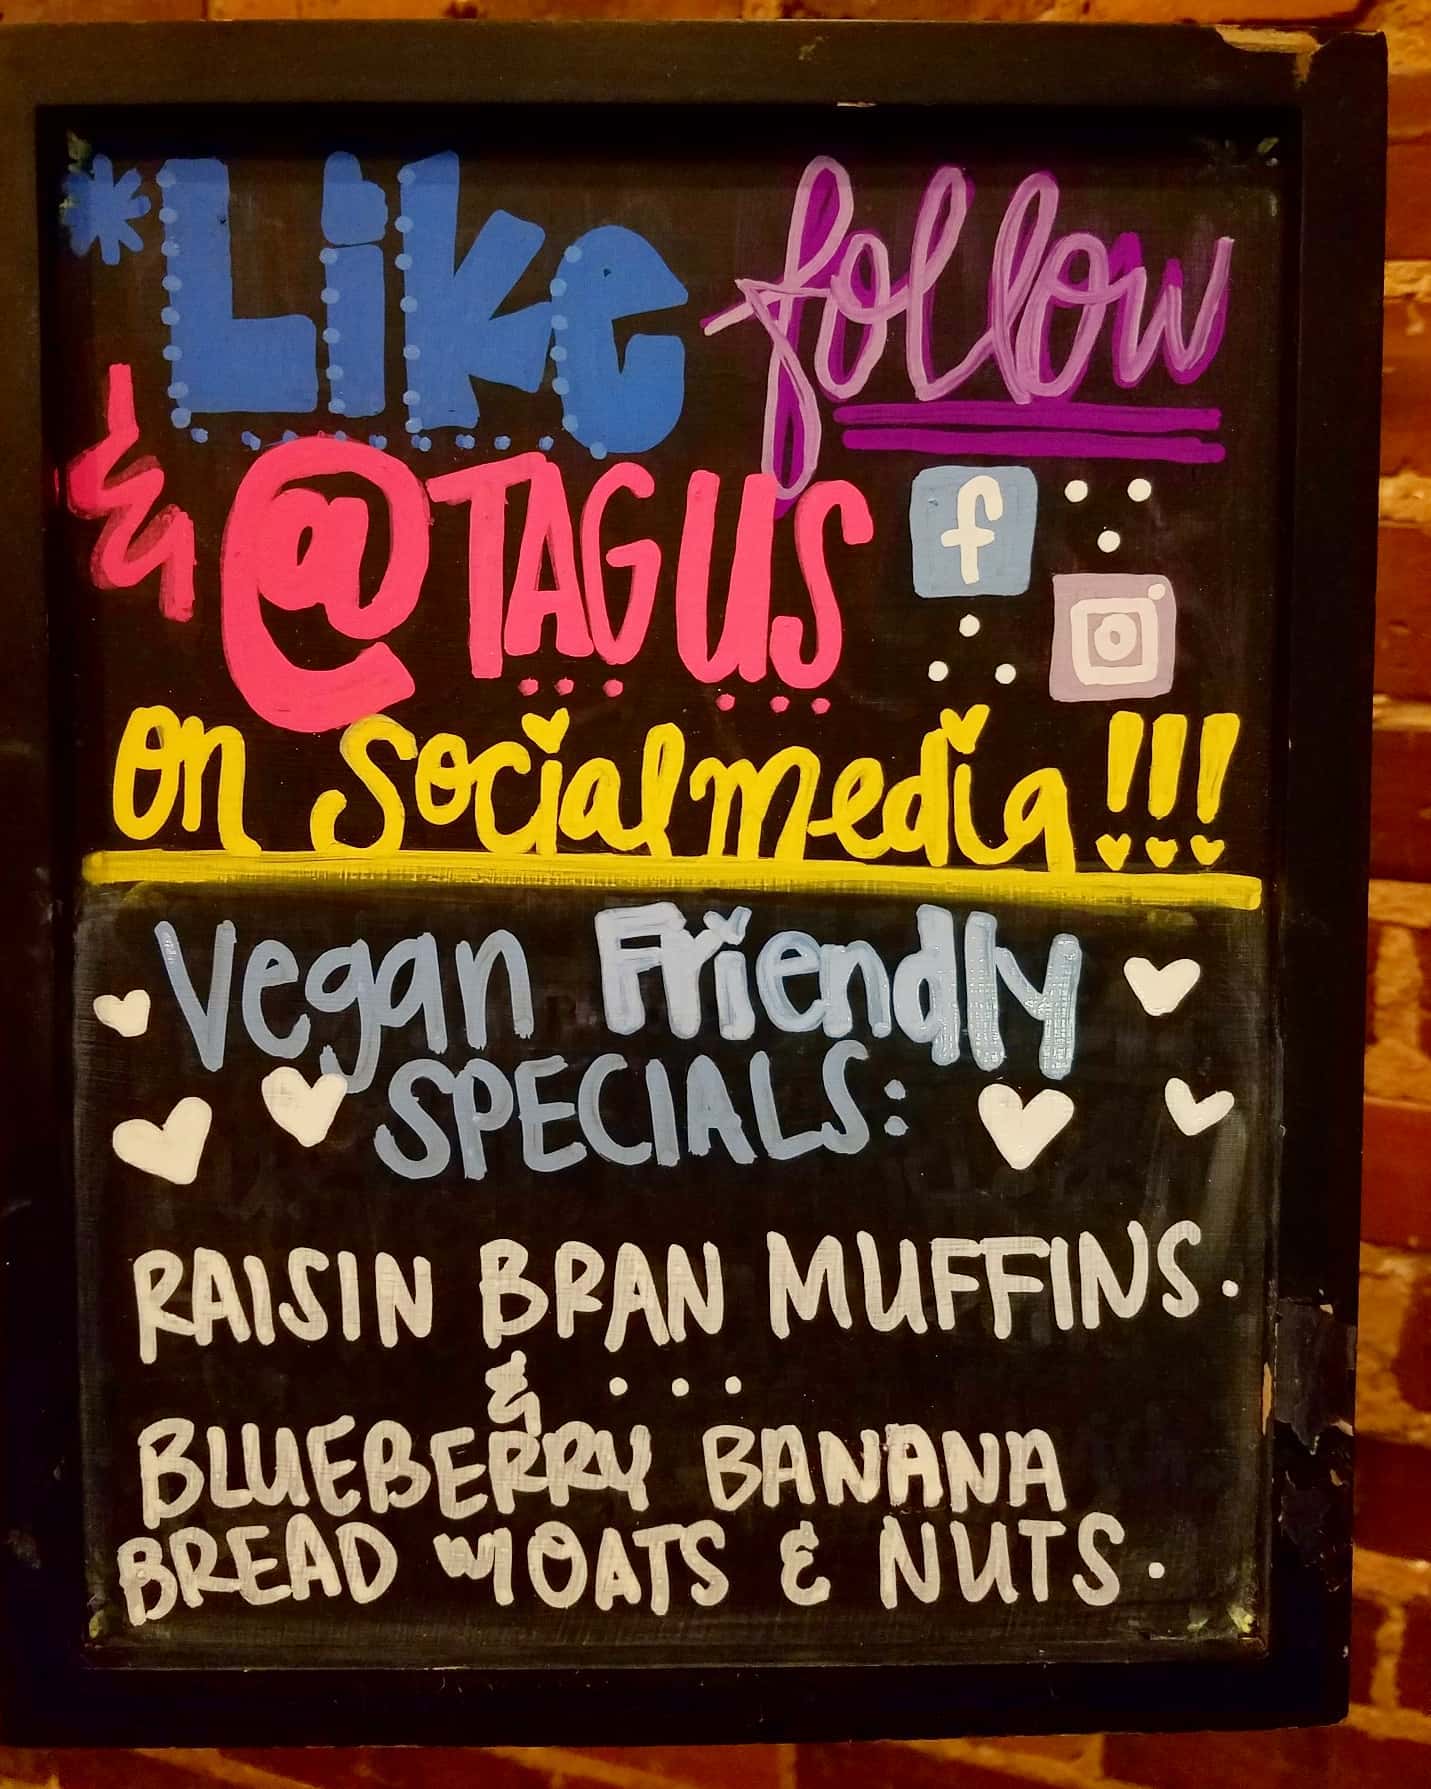 *Like follow
& @TAG US f
on social media!!!
Vegan Friendly
SPECIALS:
RAISIN BRAN MUFFINS.
& ...
BLUEBERRY BANANA
BREAD w/ OATS & NUTS.